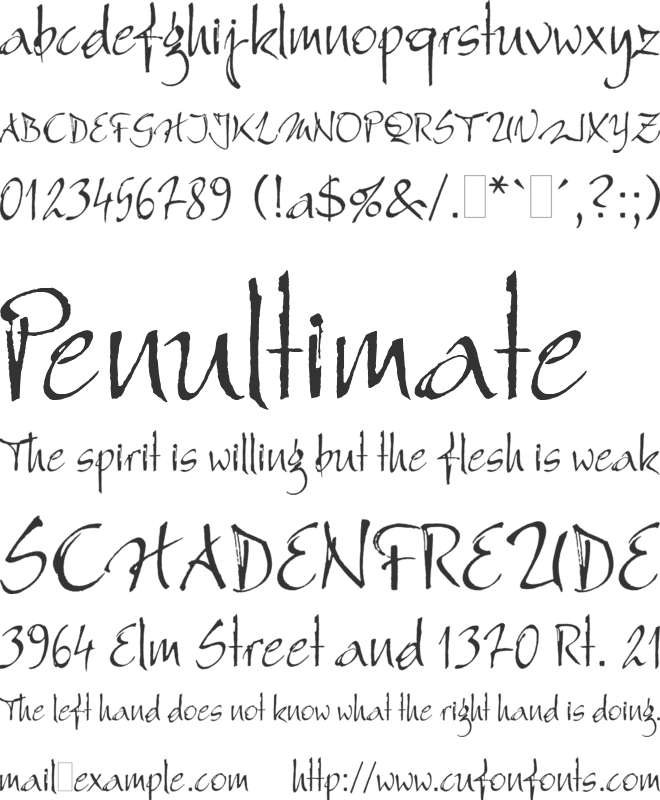 abcdefghijklmnopqrstuvwxyz
ABCDEFGHIJKLMNOPQRSTUVWXYZ
0123456789 (!a$%&/.▯*`▯´,?:;)
Penultimate
The spirit is willing but the flesh is weak
SCHADENFREUDE
3964 Elm Street and 1370 Rt. 21
The left hand does not know what the right hand is doing.
mail▯example.com http://www.cufonfonts.com